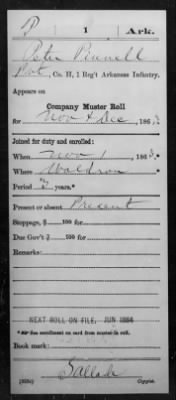 P | 1 | Ark.
Peter Pinnell
Pvt, Co. H, 1 Reg't Arkansas Infantry.
Appears on
Company Muster Roll
for Nov & Dec, 1863
Joined for duty and enrolled:
When Nov 1, 1863.
Where Waldron
Period years.*
Present or absent Present
Stoppage, $ 100 for
Due Gov't $ 100 for
Remarks:
NEXT ROLL ON FILE, JUN 1864
*See enrollment on card from muster-in roll.
Book mark:
Copyist.